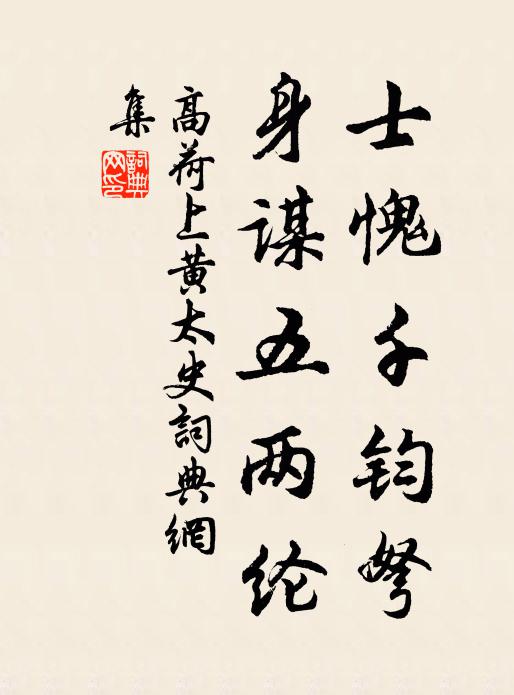 士愧千钧弩
身谋五两纶
高荷上黄太史詞典網
集
詞典網印